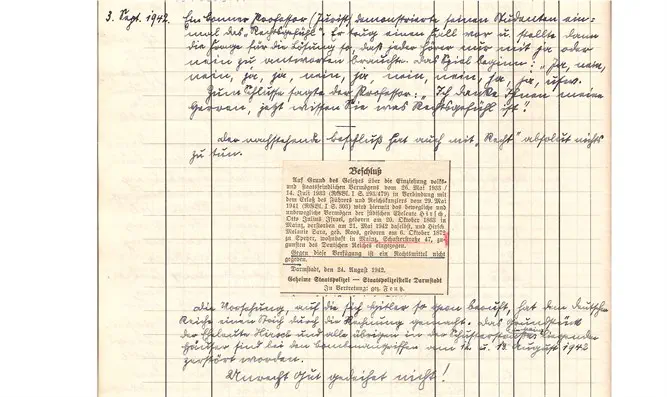 3. Sept. 1942. Ein Bonner Professor (Jurist) demonstrierte seinen Studenten ein=
mal das „Rechtsgefühl". Er trug einen Fall vor u. stellte dann
die Frage für die Lösung so, daß jeder Hörer nur mit ja oder
nein zu antworten brauchte. Das Spiel begann: „Ja, nein,
nein, ja, ja, nein, ja, nein, nein, ja, ja, usw.
Zum Schlusse sagte der Professor: „Ich danke Ihnen meine
Herren, jetzt wissen Sie was Rechtsgefühl ist!"
Der nachstehende Beschluß hat auch mit „Recht" absolut nichts
zu tun.
Beschluß
Auf Grund des Gesetzes über die Einziehung volks-
und staatsfeindlichen Vermögens vom 26. Mai 1933 /
14. Juli 1933 (RGBl. I S. 293/479) in Verbindung mit
dem Erlaß des Führers und Reichskanzlers vom 29. Mai
1941 (RGBl. I S. 303) wird hiermit das bewegliche und
unbewegliche Vermögen der jüdischen Eheleute Hirsch,
Otto Julius Israel, geboren am 20. Oktober 1863 in
Mainz, verstorben am 21. Mai 1942 daselbst, und Hirsch
Melanie Sara, geb. Roos, geboren am 6. Oktober 1872
zu Speyer, wohnhaft in Mainz, Schusterstraße 47, zu-
gunsten des Deutschen Reiches eingezogen.
Gegen diese Verfügung ist ein Rechtsmittel nicht
gegeben.
Darmstadt, den 24. August 1942.
Geheime Staatspolizei — Staatspolizeistelle Darmstadt
In Vertretung: gez. Fentz.
Die Vorsehung, auf die sich Hitler so gern beruft, hat dem deutschen
Reiche einen Strich durch die Rechnung gemacht. Das Grundstück
der Eheleute Hirsch und alle übrigen in der Schusterstraße liegenden
Häuser sind bei den Bombenangriffen am 12. u. 13. August 1942
zerstört worden.
Unrecht Gut gedeihet nicht!